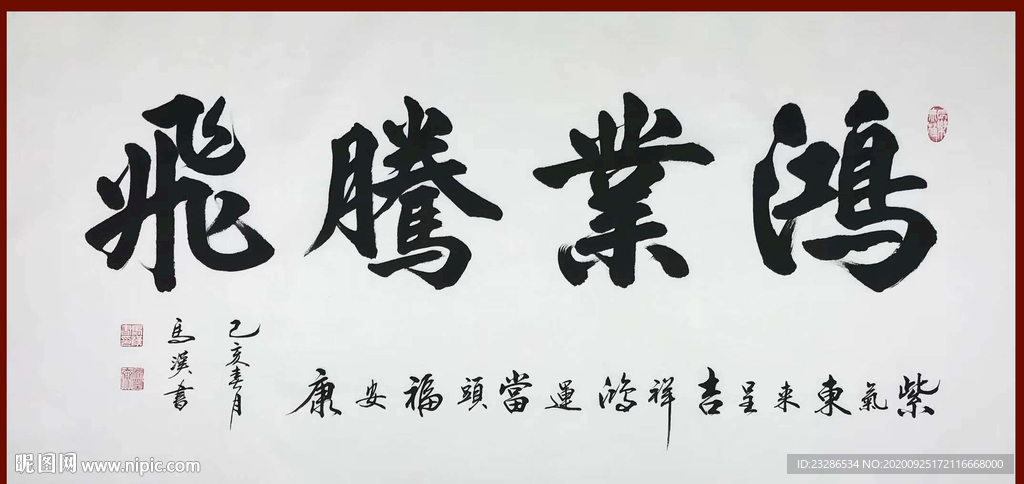 鴻業騰飛
紫氣東来呈吉祥鴻運當頭福安康
己亥春月
馬漢書
昵图网 www.nipic.com
ID:23286534 NO:20200925172116668000